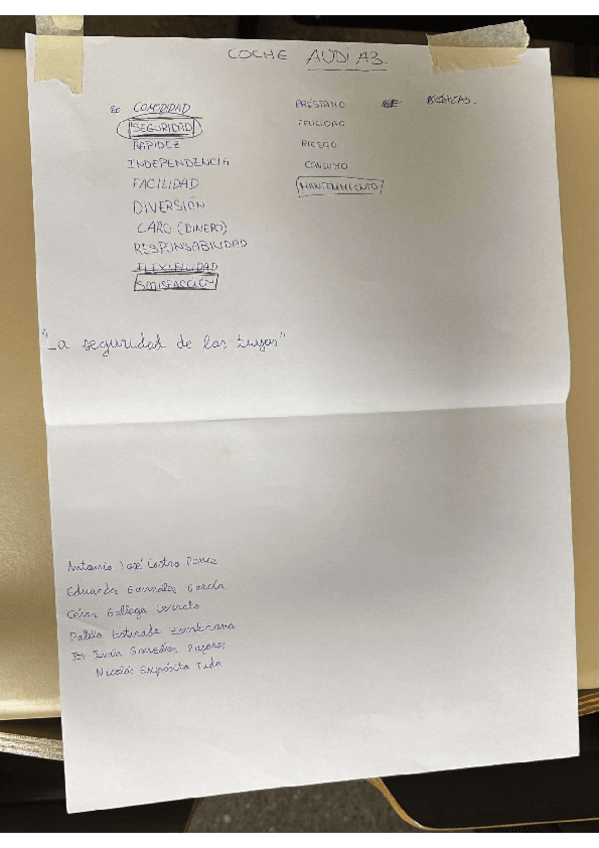 COCHE AUDI A3.
COMODIDAD
SEGURIDAD
RAPIDEZ
INDEPENDENCIA
FACILIDAD
DIVERSIÓN
CARO (DINERO)
RESPONSABILIDAD
FLEXIBILIDAD
SATISFACCIÓN
PRÉSTAMO
FELICIDAD
RIESGO
CONSUMO
MANTENIMIENTO
"La seguridad de los tuyos"
Antonio José Castro
Eduardo González García
César Gallego
Iván González
Nicolás Expósito